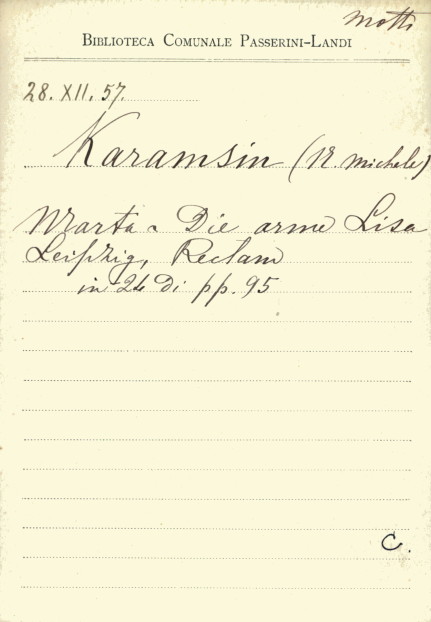 Motti
BIBLIOTECA COMUNALE PASSERINI-LANDI
28. XII. 57.
Karamsin (N. Michele)
Marta - Die arme Lisa
Leipzig, Reclam
in 24 Di pp. 95
C.